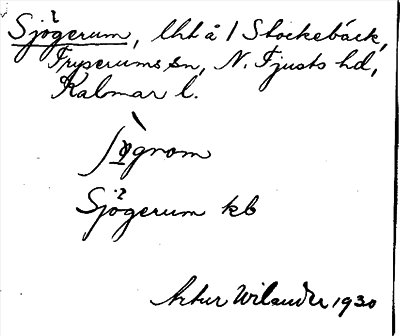 Sjögerum, lht å 1 Stockebäck,
Fryserums sn, N. Tjusts hd,
Kalmar l.
Sjögerum kb
Artur Wilander 1930